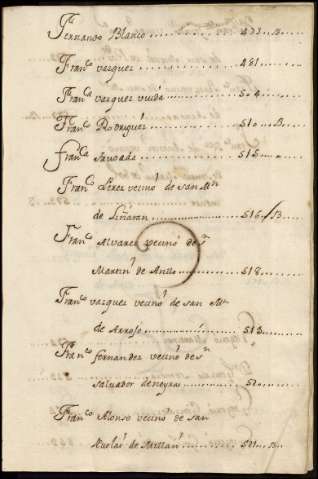 Fernando Blanco ........ 433..B..
Fran.co vazquez ........ 481....
Fran.ca vazquez viuda ..... 504....
Fran.co Rodriguez ........ 510..B..
Fran.ca savada ........ 515....
Fran.co Perez vecino de san Mn
de Liñaran ........ 516..B...
Fran.co Alvarez vecino de Sn
Martin de Anllo ........ 518....
Fran.co vazquez vecino de san Mn
de Arrojo ........ 513....
Fran.co fernandez vecino de Sn
salvador de neyras ........ 520....
Fran.co Alonso vecino de san
de ........ 521..B...